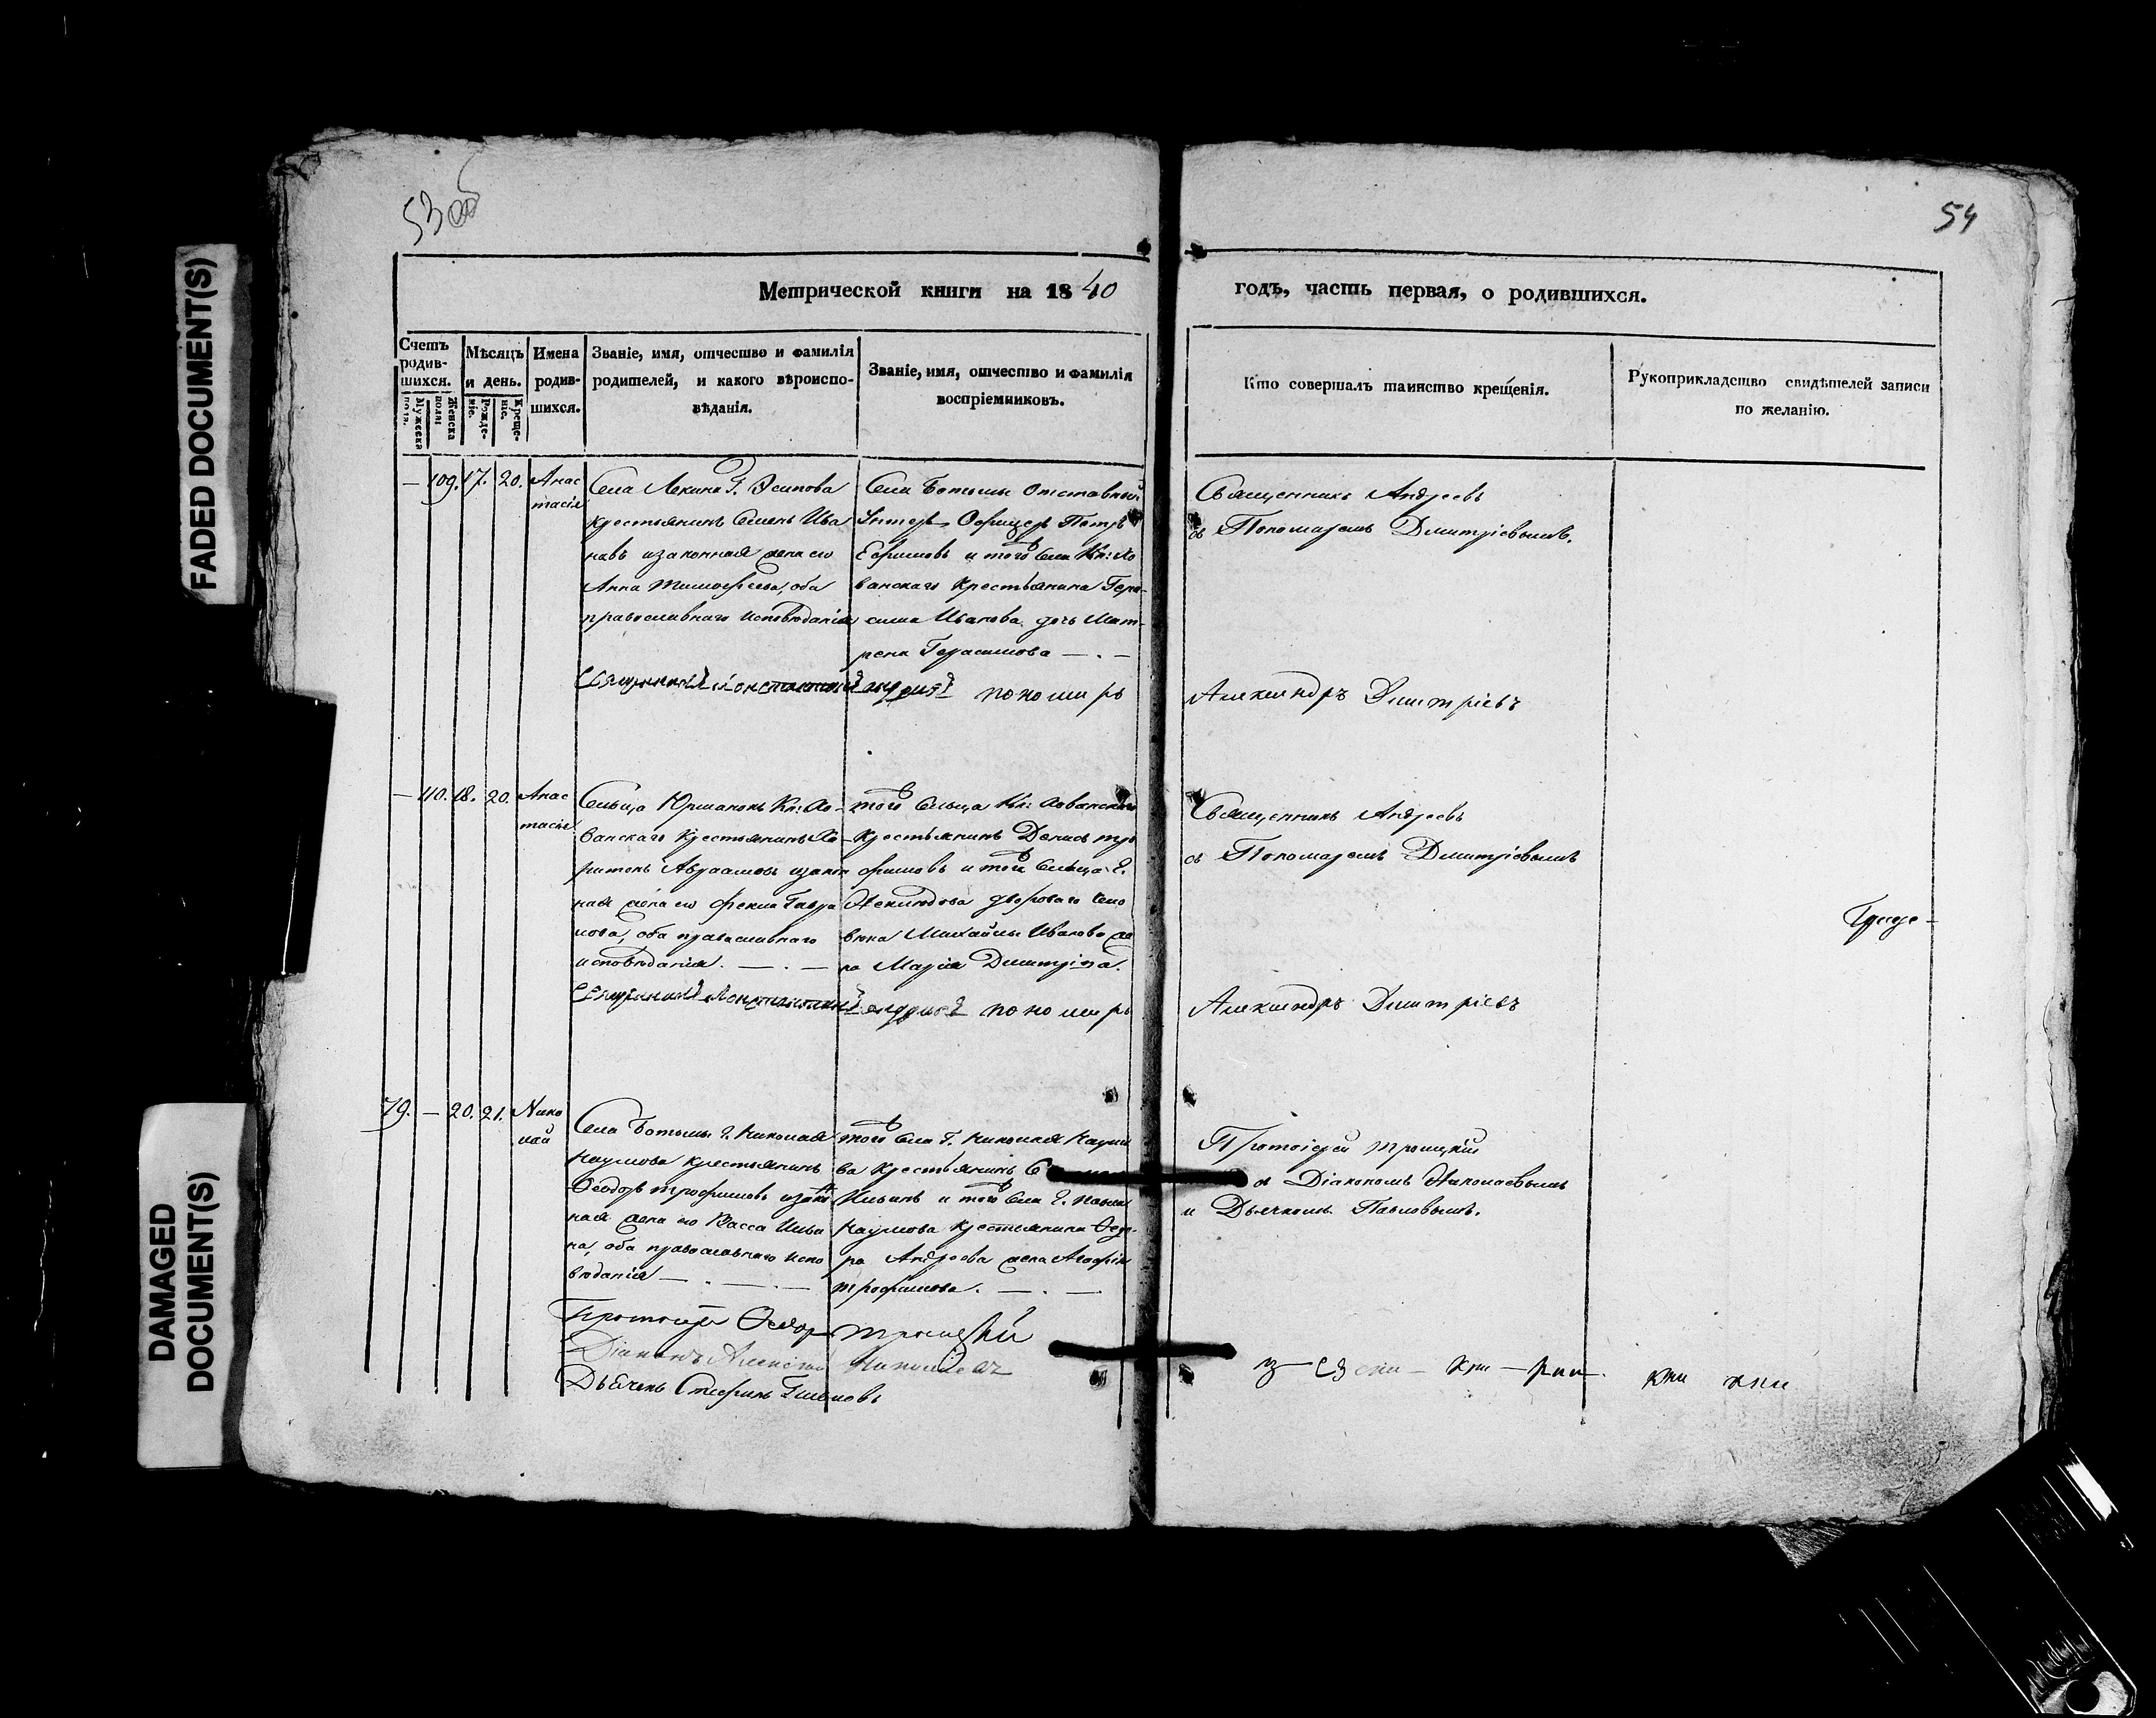 FADED DOCUMENT(S)
DAMAGED
DOCUMENT(S)
53 об
54
Метрической книги на 1840
годъ, часть первая, о родившихся.
Счетъ
родив-
шихся.
Мужеска
пола.
Женска
пола.
Мѣсяцъ
и день.
Рожде-
ніе.
Креще-
ніе.
Имена
родив-
шихся.
Званіе, имя, отчество и фамилія
родителей, и какого вѣроиспо-
вѣданія.
Званіе, имя, отчество и фамилія
воспріемниковъ.
Кто совершалъ таинство крещенія.
Рукоприкладство свидѣтелей записи
по желанію.
— 109. 17. 20.
Анас
тасія
Села Г. Осипова
крестьянинъ Семенъ Ива
новъ изаконная жена его
Анна Тимофеева, оба
православнаго исповѣданія
Села Ботьмы Отставный
Унтеръ Офицеръ Петръ
Ефимовъ и того Села Кн: Хо
ванскаго крестьянина Гера-
сима Иванова дочь Мат-
рена Герасимова — . —
Священникъ Андреевъ
съ Пономаремъ Дмитріевымъ.
Священникъ Константинъ Андреевъ пономарь
Александръ Димитріевъ
— 110. 18. 20.
Анас
тасія
Сельца Юрманокъ Кн: Хо-
ванскаго крестьянинъ Ха-
ритонъ Авраамовъ изакон
ная жена его Фекла Гаври
лова, оба православнаго
исповѣданія. — . —
того Сельца Кн: Хованскаго
крестьянинъ Денисъ тро
фимовъ и того Сельца Г.
двороваго чело
вѣка Михайлы Иванова же
на Марія Димитріева.
Священникъ Андреевъ
съ Пономаремъ Дмитріевымъ
Священникъ Константинъ Андреевъ пономарь
Александръ Димитріевъ
79. — 20. 21.
Нико
лай
Села Ботьмы Г. Николая
Наумова крестьянинъ
Ѳеодоръ трофимовъ изакон
ная жена его Васса Ильи
на, оба православнаго испо
вѣданія — . —
того Села Г. Николая Наумо
ва крестьянинъ
Ильинъ и того Села Г. Павла
Наумова крестьянина Ѳедо-
ра Андреева жена Агафія
трофимова. — . —
Протоіерей троицкій
съ Діакономъ Николаевымъ
и Дьячкомъ Павловымъ.
Протоіерей Ѳеодоръ троицкій
Діаконъ Алексѣй Николаевъ
Дьячекъ Стефанъ Павловъ